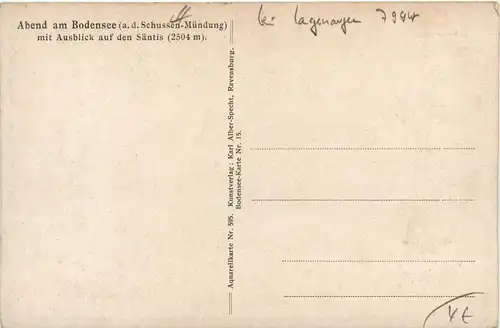 Abend am Bodensee (a. d. Schussen-Mündung)
mit Ausblick auf den Säntis (2504 m).
bei Lagenargen 7994
Aquarellkarte Nr. 595. Kunstverlag: Karl Alber-Specht, Ravensburg.
Bodensee-Karte Nr. 15.
4€